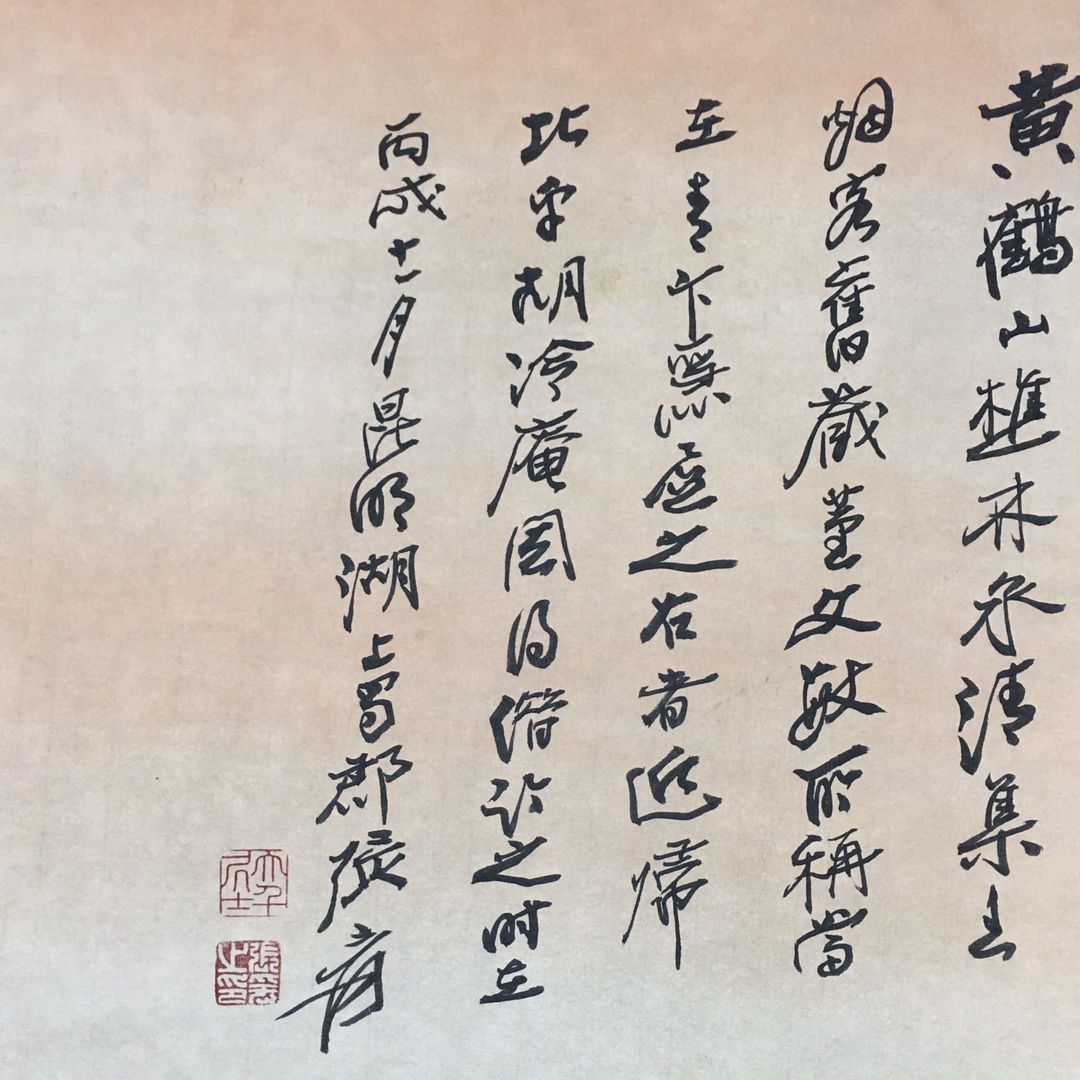 黃鶴山樵林泉清集王
烟客舊藏董文敏所稱當
在青卞之右者近歸
北平胡冷庵因得借臨之時在
丙戌十二月昆明湖上蜀郡張爰
大千居士
張爰之印